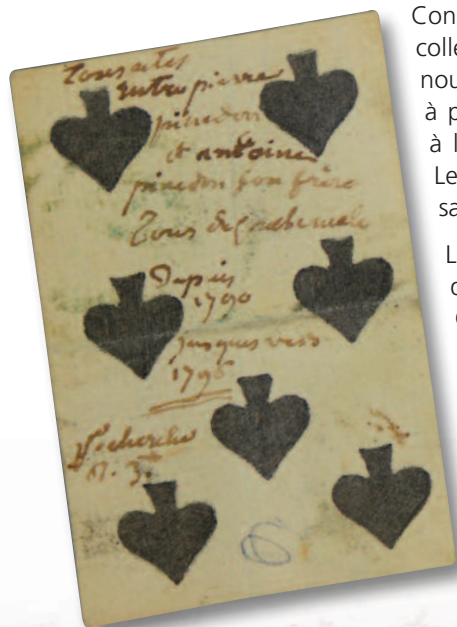 Tous actes
entre pierre
pinedon
et antoine
pinedon son frère
Tous de
Depuis
1790
jusques vers
1796
N. 3.
6
Con
colle
nou
à p
à l
Le
sa
L
c